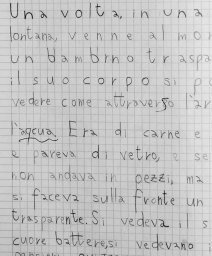 Una volta, in una
lontana, venne al mo
un bambino traspa
il suo corpo si p
vedere come attraverso l'ar
l'acqua. Era di carne e
e pareva di vetro, e se
non andava in pezzi, ma
si faceva sulla fronte un
trasparente. Si vedeva il s
cuore battere, si vedevano i